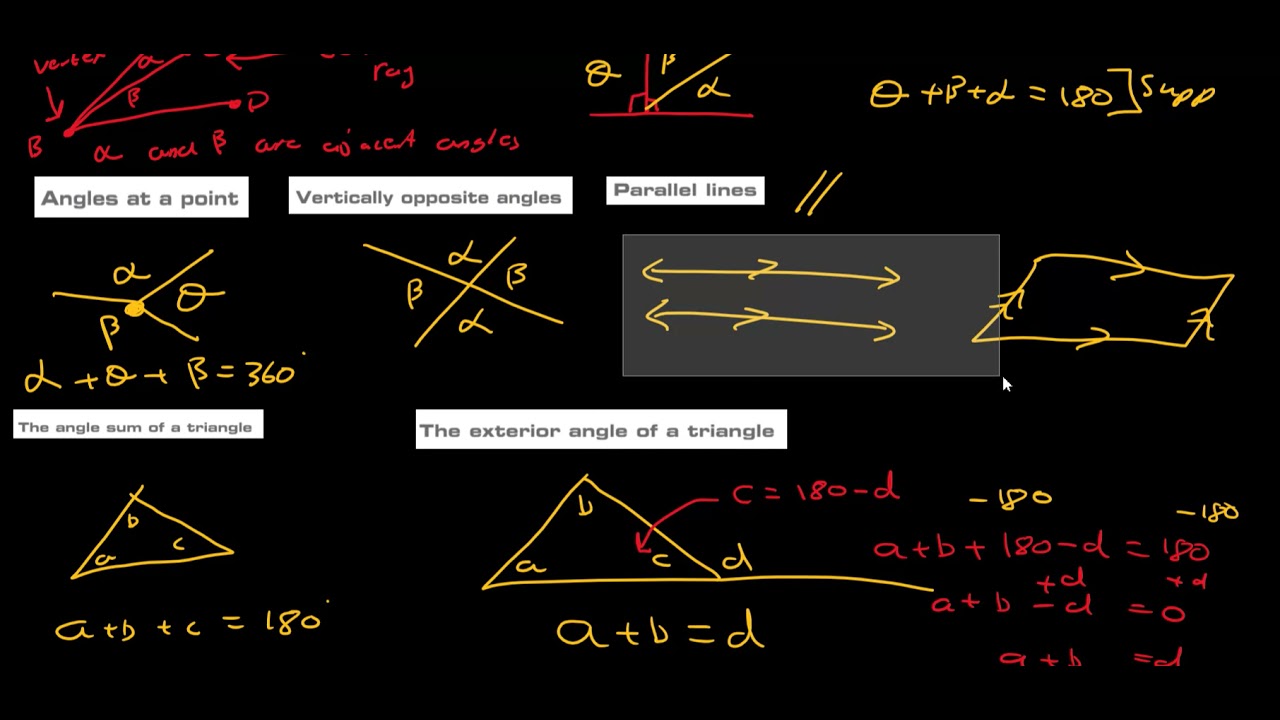 vertex α
ray
β D
B
α and β are adjacent angles
θ β α
θ + β + α = 180 ] Supp
Angles at a point
Vertically opposite angles
Parallel lines //
α θ β
α β β α
α + θ + β = 360°
The angle sum of a triangle
The exterior angle of a triangle
b a c
a + b + c = 180°
b a c d
c = 180 - d
a + b = d
- 180 - 180
a + b + 180 - d = 180
+ d + d
a + b - d = 0
a + b = d